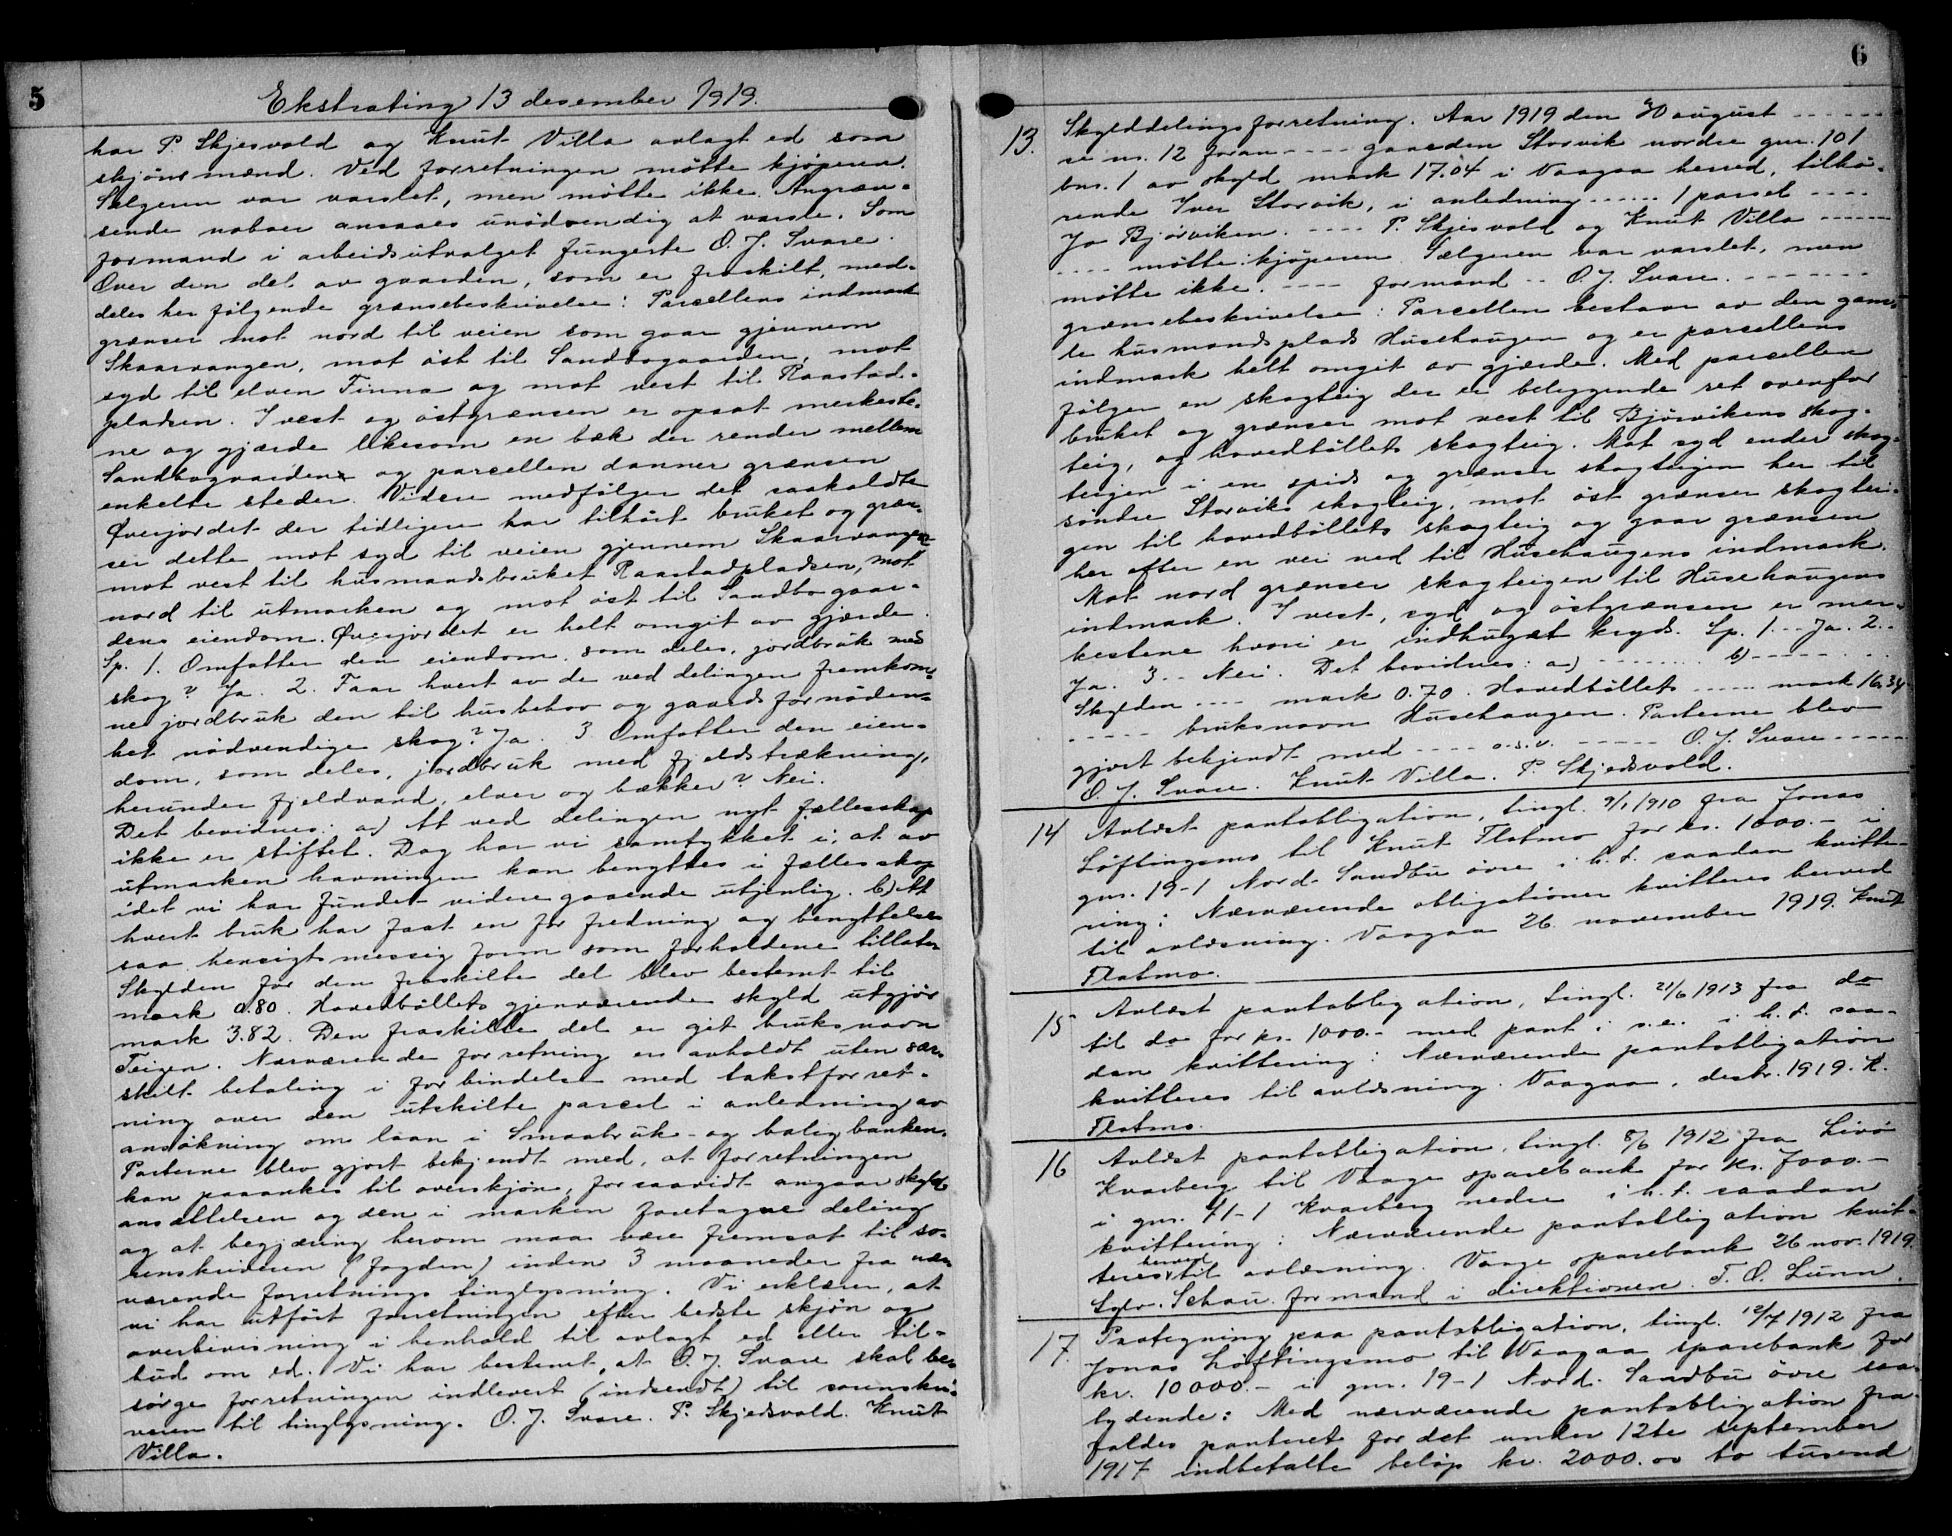 5
Ekstrating 13 desember 1919.
har P. Skjesvold og Knut Villa avlagt ed som
skjönsmænd. Ved forretningen møtte kjøperen.
Sælgeren var varslet, men møtte ikke. Angræn-
sende naboer ansaaes unødvendig at varsle. Som
formand i arbeidsutvalget fungerte O. J. Svare.
Over den del av gaarden, som er fraskilt, med-
deles her følgende grænsebeskrivelse: Parcellens indmark
grænser mot nord til veien som gaar gjennem
Skaarvangen, mot øst til Sandbogaarden, mot
syd til elven Finna og mot vest til Raastad-
pladsen. I vest og østgrænsen er opsat merkeste-
ne og gjærde likesom en bæk der render mellem
Sandbogaarden og parcellen danner grænsen
enkelte steder. Videre medfølger det saakaldte
Øverjordet der tidligere har tilhørt bruket og græn-
ser dette mot syd til veien gjennem Skaarvangen
mot vest til husmandsbruket Raastadpladsen, mot
nord til utmarken og mot øst til Sandbogaar-
dens eiendom. Øverjordet er helt omgit av gjærde.
Sp. 1. Omfatter den eiendom, som deles, jordbruk med
skog? Ja. 2. Faar hvert av de ved delingen fremkom-
ne jordbruk den til husbehov og gaardsfornøden-
het nødvendige skog? Ja. 3 Omfatter den eien-
dom, som deles, jordbruk med fjeldstrækning,
herunder fjeldvand, elver og bækker? Nei.
Det bevidnes: a) At ved delingen nyt fællesskap
ikke er stiftet. Dog har vi samtykket i, at av
utmarken havningen kan benyttes i fællesskap
idet vi har fundet videregaaende utjenlig. b) At
hvert bruk har faat en for fredning og benyttelse
saa hensigtsmessig form som forholdene tillater
Skylden for den fraskilte del blev bestemt til
mark 0.80. Hovedbøllets gjenværende skyld utgjør
mark 3.82. Den fraskilte del er git bruksnavn
Teigen. Nærværende forretning er avholdt uten sær-
skilt betaling i forbindelse med takstforret-
ning over den utskilte parcel i anledning av
ansøkning om laan i Smaabruk- og boligbanken.
Parterne blev gjort bekjendt med, at forretningen
kan paaankes til overskjøn, forsaavidt angaar skyld-
ansættelsen og den i marken foretagne deling
og at begjæring herom maa være fremsat til so-
renskriveren (fogden) inden 3 maaneder fra nær-
værende forretnings tinglysning. Vi erklærer, at
vi har utført forretningen efter bedste skjøn og
overbevisning i henhold til avlagt ed eller til-
bud om ed. Vi har bestemt, at O. J. Svare skal be-
sørge forretningen indlevert (indsendt) til sorenskri-
veren til tinglysning. O. J. Svare. P. Skjedsvold. Knut
Villa.
6
13. Skylddelingsforretning. Aar 1919 den 30 august - - - - -
se nr. 12 foran - - - - gaarden Storvik nordre gnr. 101
bnr. 1 av skyld mark 17.04 i Vaagaa herred, tilhø-
rende Iver Storvik, i anledning - - - - - 1 parcel - - - -
Jo Bjørviken. - - - - P. Skjesvold og Knut Villa - - - - -
- - - - møtte: kjøperen. Sælgeren var varslet, men
møtte ikke. - - - - formand - - O. J. Svare. - - - - - - -
grænsebeskrivelse: Parcellen bestaar av den gam-
le husmandsplads Husehaugen og er parcellens
indmark helt omgit av gjærde. Med parcellen
følger en skogteig der er beliggende ret ovenfor
bruket og grænser mot vest til Bjørvikens skog-
teig, og hovedbøllets skogteig. Mot syd ender skog-
teigen i en spids og grænser skogteigen her til
søndre Storviks skogteig, mot øst grænser skogtei-
gen til hovedbøllets skogteig og gaar grænsen
her efter en vei ned til Husehaugens indmark.
Mot nord grænser skogteigen til Husehaugens
indmark. I vest, syd og østgrænsen er mer-
kestene hvori er indhugget kryds. Sp. 1. - - Ja. 2. -
Ja. 3. - Nei. Det bevidnes: a) - - - - - - - b) - - - - - - -
Skylden - - - - mark 0.70. Hovedbøllets - - - - - mark 16.34
- - - - - bruksnavn Husehaugen. Parterne blev
gjort bekjendt med - - - - o.s.v. - - - - - O. J. Svare - - - - -
O. J. Svare. Knut Villa. P. Skjedsvold.
14 Avløst pantobligation, tingl. 9/1 1910 fra Jonas
Løftingsmo til Knut Flatmo for kr. 1000.- i
gnr. 19-1 Nord. Sandbu øvre i h. t. saadan kvitte-
ring: Nærværende obligationer kvitteres herved
til avløsning. Vaagaa 26 november 1919. Knut
Flatmo.
15 Avløst pantobligation, tingl. 21/6 1913 fra do
til do for kr. 1000.- med pant i s.e. i h. t. saa-
dan kvittering: Nærværende pantobligation
kvitteres til avløsning. Vaagaa, desbr. 1919. K.
Flatmo.
16 Avløst pantobligation, tingl. 8/6 1912 fra Livø
Kvarberg til Vaage sparebank for kr. 7000.-
i gnr. 71-1 Kvarberg nedre i h. t. saadan
kvittering: Nærværende pantobligation kvit-
teres herved til avløsning. Vaage sparebank 26 nov. 1919.
Sylv. Schou. formand i direktionen. T. O. Lunn.
17. Paategning paa pantobligation, tingl. 12/7 1912 fra
Jonas Løftingsmo til Vaagaa sparebank for
kr. 10000.- i gnr. 19-1 Nord. Sandbu øvre saa-
lydende: Med nærværende pantobligation fra-
faldes panteret for det under 12te september
1917 indbetalte beløp kr. 2000.oo to tusend